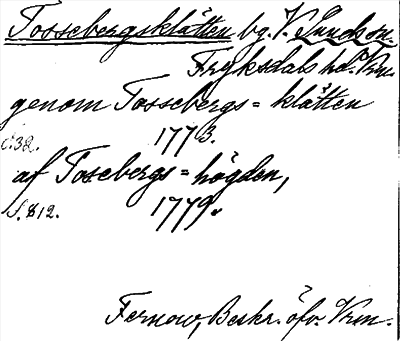 Tossebergsklätten bg. V. Sunds sn.
Fryksdals hd. Vrm.
genom Tossebergs=klätten
1773.
s. 32.
af Tosebergs=högden,
1779.
S. 812.
Fernow, Beskr. öfv. Vrm.